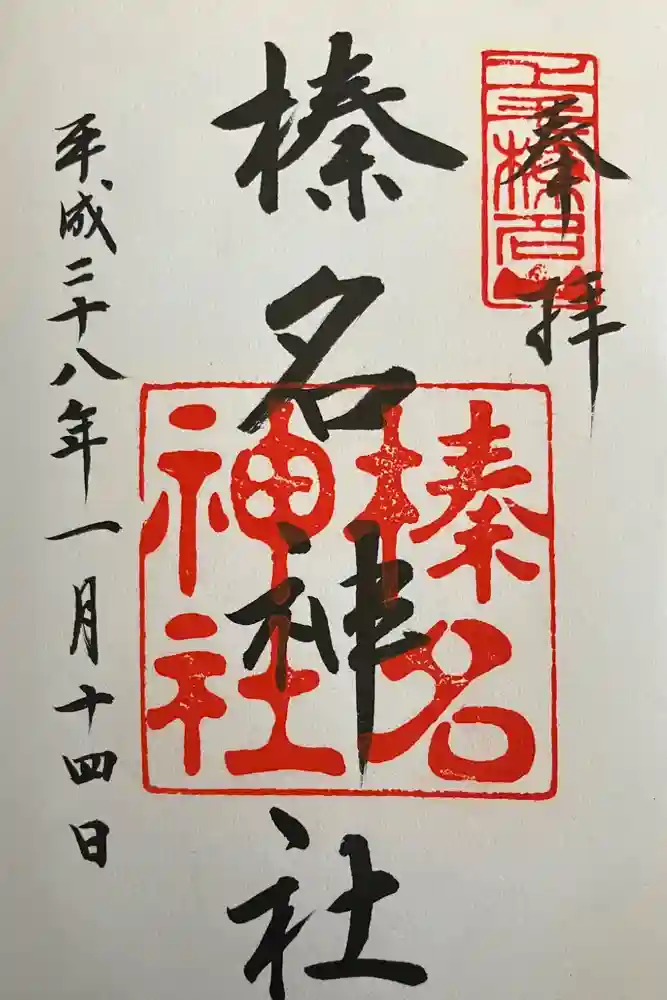 奉拝
上毛榛名山
榛名神社
榛名
神社
平成二十八年一月十四日